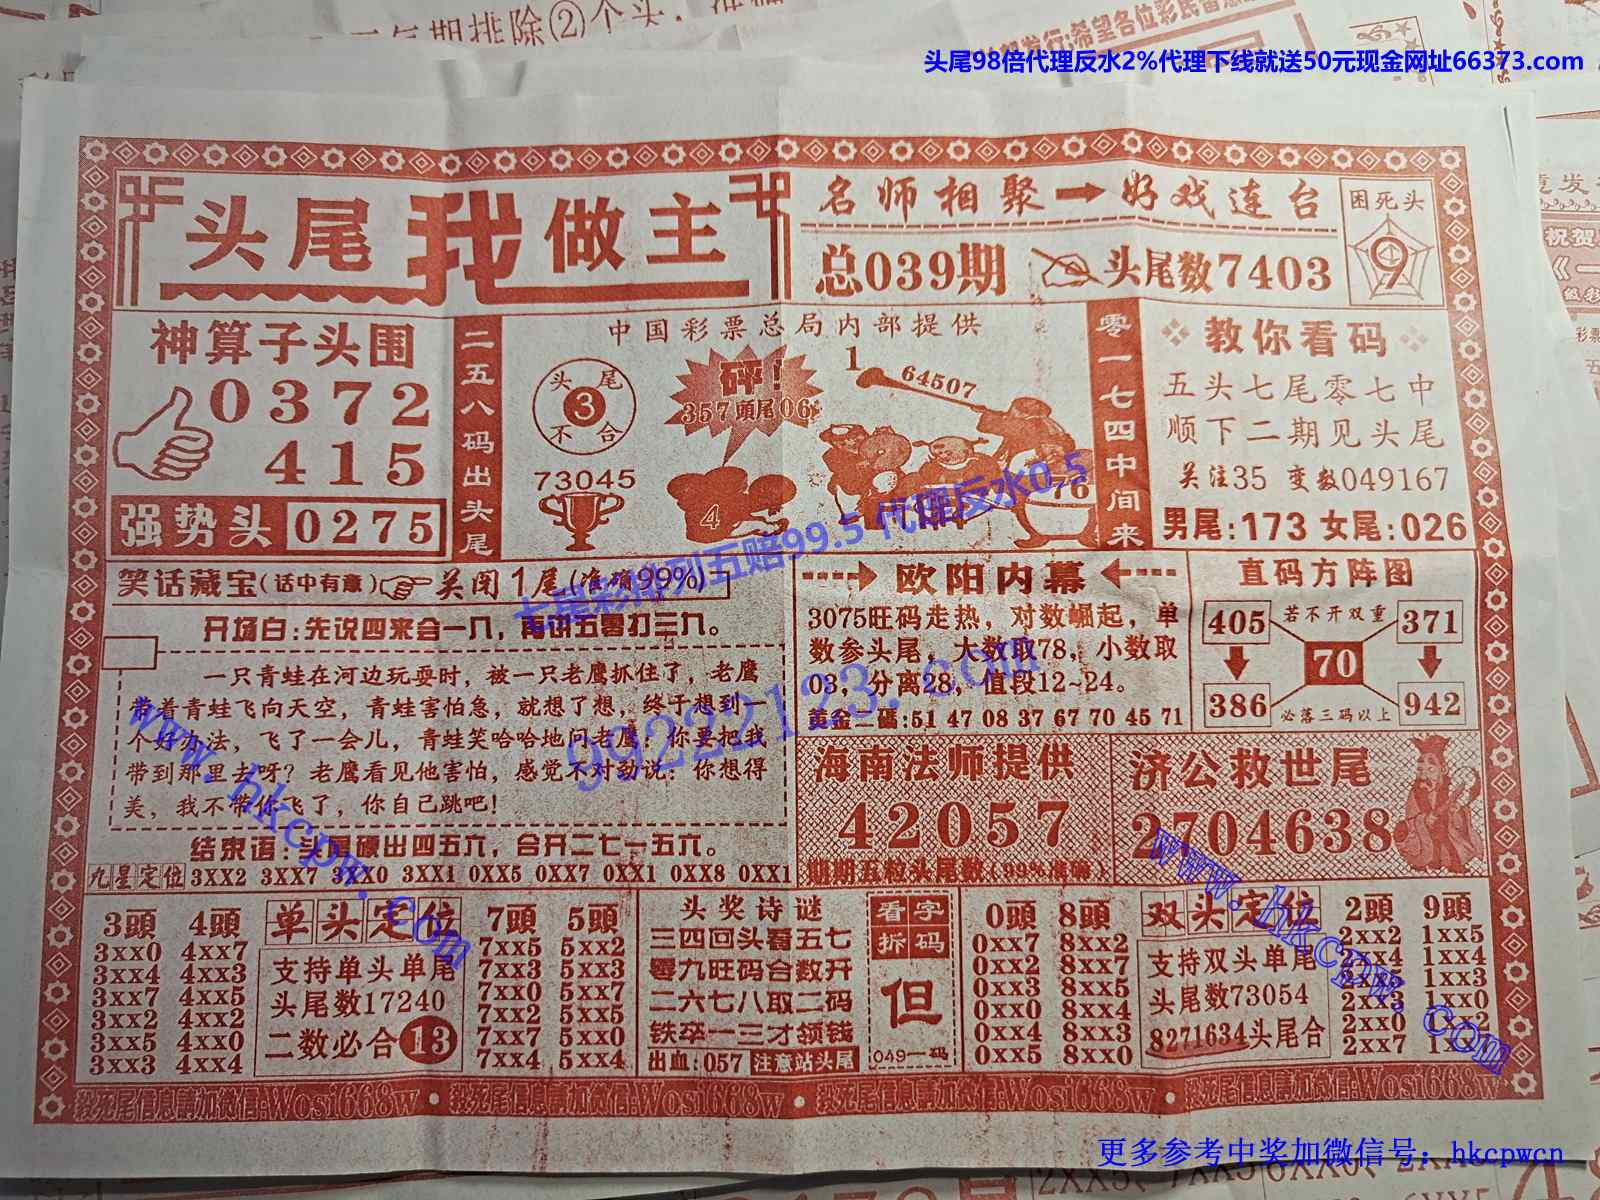 头尾98倍代理反水2%代理下线就送50元现金网址66373.com
头尾我做主
名师相聚 好戏连台
总039期 头尾数7403
困死头
9
神算子头围
0372
415
强势头 0275
二五八码出头尾
中国彩票总局内部提供
头尾
3
不合
砰!
357頭尾06
1
64507
73045
4
76
零一七四中间来
教你看码
五头七尾零七中
顺下二期见头尾
关注35 变数049167
男尾:173 女尾:026
笑话藏宝(话中有意) 关闭1尾(准确99%)
开场白:先说四来合一八,再讲五零扪三九。
一只青蛙在河边玩耍时,被一只老鹰抓住了,老鹰
带着青蛙飞向天空,青蛙害怕急,就想了想,终于想到一
个好办法,飞了一会儿,青蛙笑哈哈地问老鹰:你要把我
带到那里去呀?老鹰看见他害怕,感觉不对劲说:你想得
美,我不带你飞了,你自己跳吧!
结束语:头尾硬出四五六,合开二七一五六。
九星定位 3XX2 3XX7 3XX0 3XX1 0XX5 0XX7 0XX1 0XX8 0XX1
七星彩排列五赔99.5 代理反水0.5
99222123.com
www.hkcpw.com
欧阳内幕
3075旺码走热,对数崛起,单
数参头尾,大数取78,小数取
03,分离28,值段12~24。
黄金二碼:51 47 08 37 67 70 45 71
直码方阵图
405 若不开双重 371
70
386 必落三码以上 942
海南法师提供
42057
期期五粒头尾数(99%准确)
济公救世尾
2704638
www.hkcpw.com
3頭 4頭
3xx0 4xx7
3xx4 4xx3
3xx7 4xx5
3xx2 4xx2
3xx5 4xx0
3xx3 4xx4
单头定位
支持单头单尾
头尾数17240
二数必合13
7頭 5頭
7xx5 5xx2
7xx3 5xx3
7xx0 5xx7
7xx2 5xx5
7xx7 5xx0
7xx4 5xx4
头奖诗谜
三四回头看五七
零九旺码合数开
二六七八取二码
铁卒一三才领钱
出血:057 注意站头尾
看字
拆码
但
049一码
0頭 8頭
0xx7 8xx2
0xx2 8xx7
0xx3 8xx5
0xx0 8xx4
0xx4 8xx3
0xx5 8xx0
双头定位
支持双头单尾
头尾数73054
8271634头尾合
2頭 9頭
2xx2 1xx5
2xx4 1xx4
2xx5 1xx3
2xx3 1xx0
2xx0 1xx2
2xx7
殺死尾信息請加微信:Wosi668w • 殺死尾信息請加微信:Wosi668w • 殺死尾信息請加微信:Wosi668w
更多参考中奖加微信号: hkcpwcn